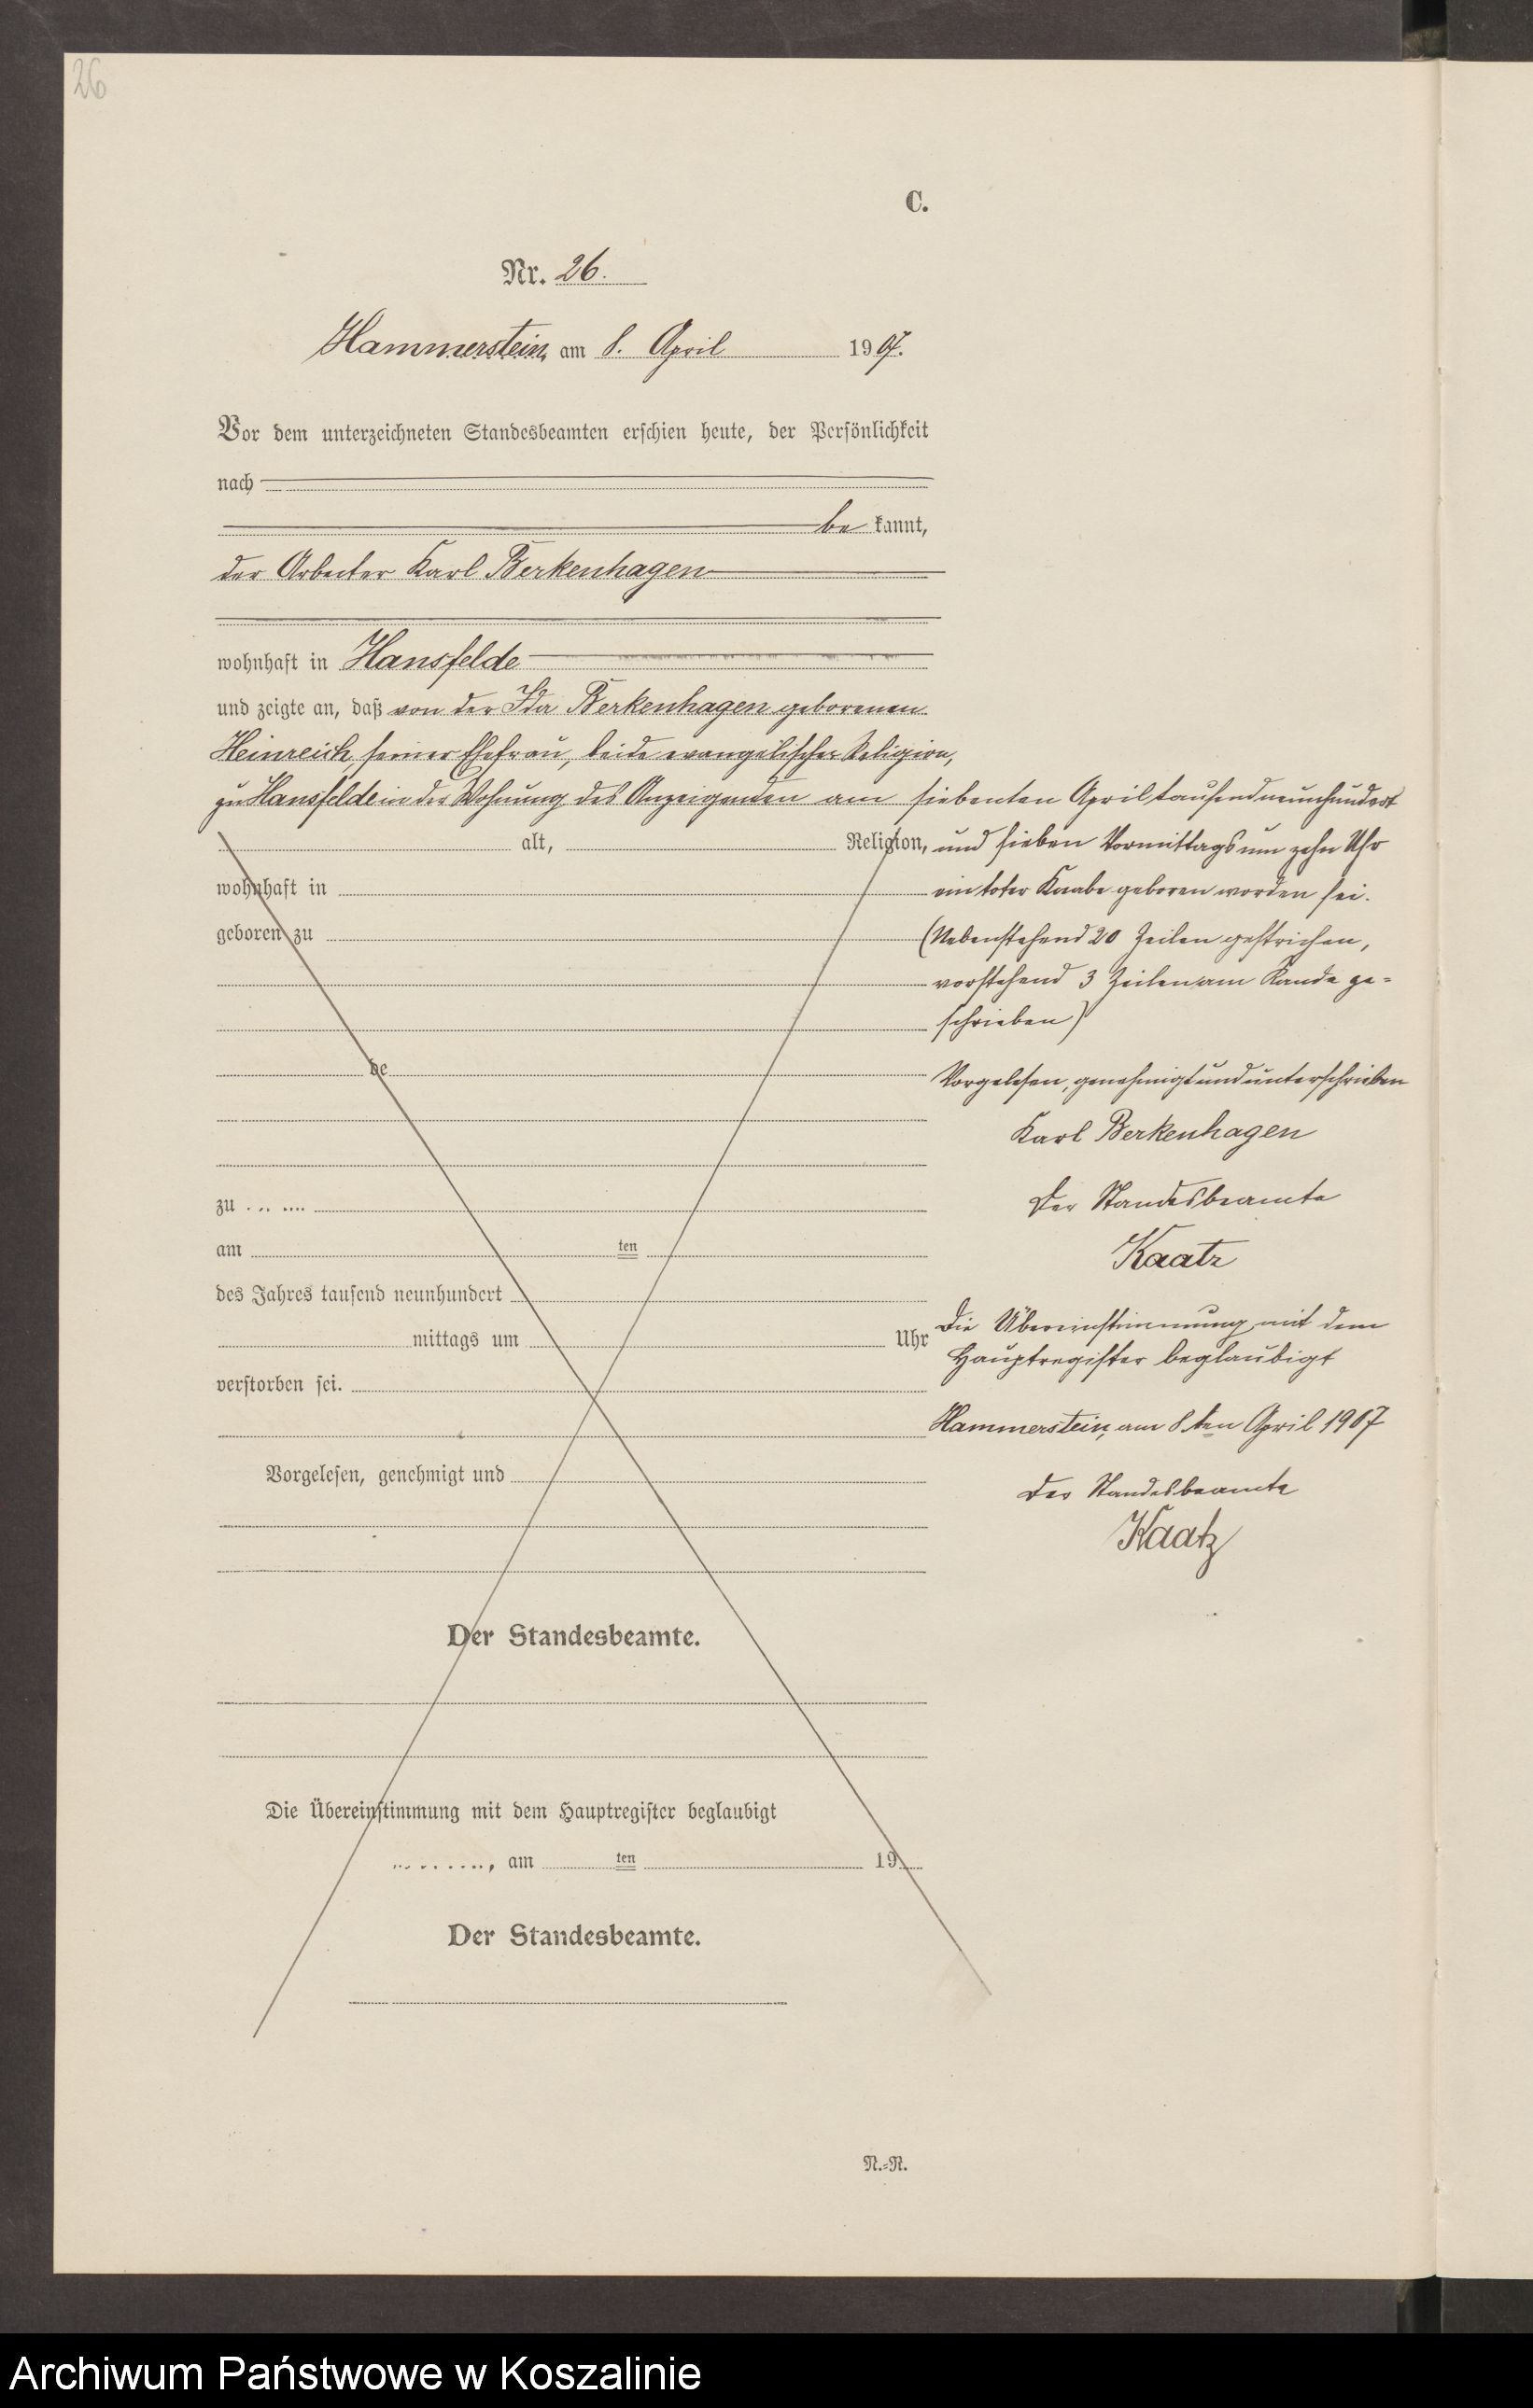 26
C.
Nr. 26.
Hammerstein, am 8. April 1907.
Vor dem unterzeichneten Standesbeamten erschien heute, der Persönlichkeit
nach
be kannt,
der Arbeiter Karl Berkenhagen
wohnhaft in Hansfelde
und zeigte an, daß von der Ida Berkenhagen geborenen
Heinreich, seiner Ehefrau, beide evangelischer Religion,
zu Hansfelde in der Wohnung des Anzeigenden am siebenten April tausend neunhundert
alt, Religion, und sieben Vormittags um zehn Uhr
wohnhaft in ein toter Knabe geboren worden sei.
geboren zu (Nebenstehend 20 Zeilen gestrichen,
vorstehend 3 Zeilen am Rande ge=
schrieben)
be
Vorgelesen, genehmigt und unterschrieben
Karl Berkenhagen
zu Der Standesbeamte
am ten
Kaatz
des Jahres tausend neunhundert
Die Übereinstimmung mit dem
mittags um Uhr
Hauptregister beglaubigt
verstorben sei.
Hammerstein, am 8ten April 1907
Vorgelesen, genehmigt und
Der Standesbeamte
Kaatz
Der Standesbeamte.
Die Übereinstimmung mit dem Hauptregister beglaubigt
, am ten 19
Der Standesbeamte.
N.=R.
Archiwum Państwowe w Koszalinie